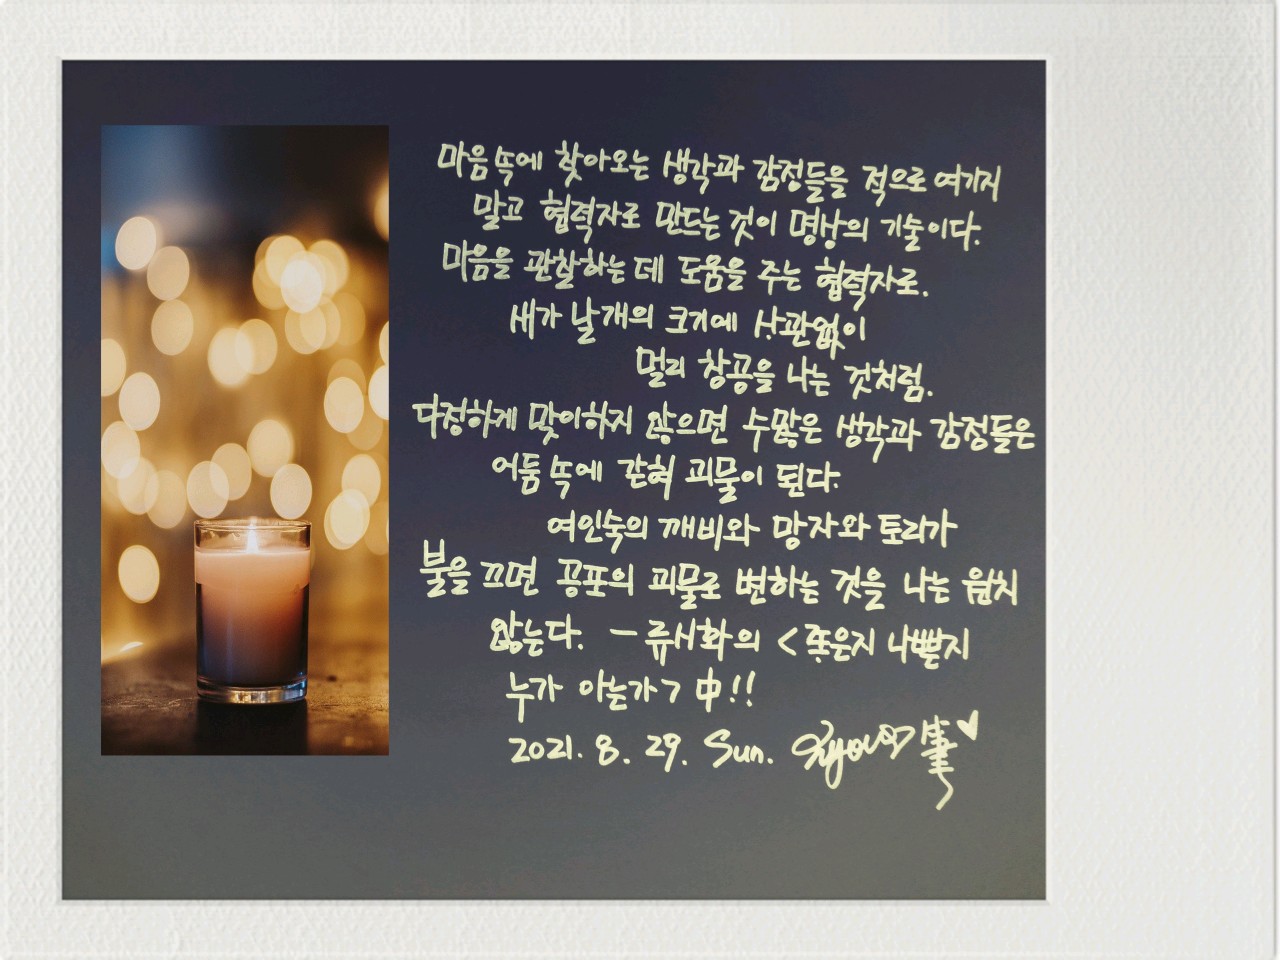 마음속에 찾아오는 생각과 감정들을 적으로 여기지
말고 협력자로 만드는 것이 명상의 기술이다.
마음을 관찰하는 데 도움을 주는 협력자로.
새가 날개의 크기에 상관없이
멀리 창공을 나는 것처럼.
다정하게 맞이하지 않으면 수많은 생각과 감정들은
어둠 속에 갇혀 괴물이 된다.
여인숙의 깨비와 망자와 토리가
불을 끄면 공포의 괴물로 변하는 것을 나는 원치
않는다. - 류시화의 <좋은지 나쁜지
누가 아는가> 中!!
2021. 8. 29. Sun. 筆